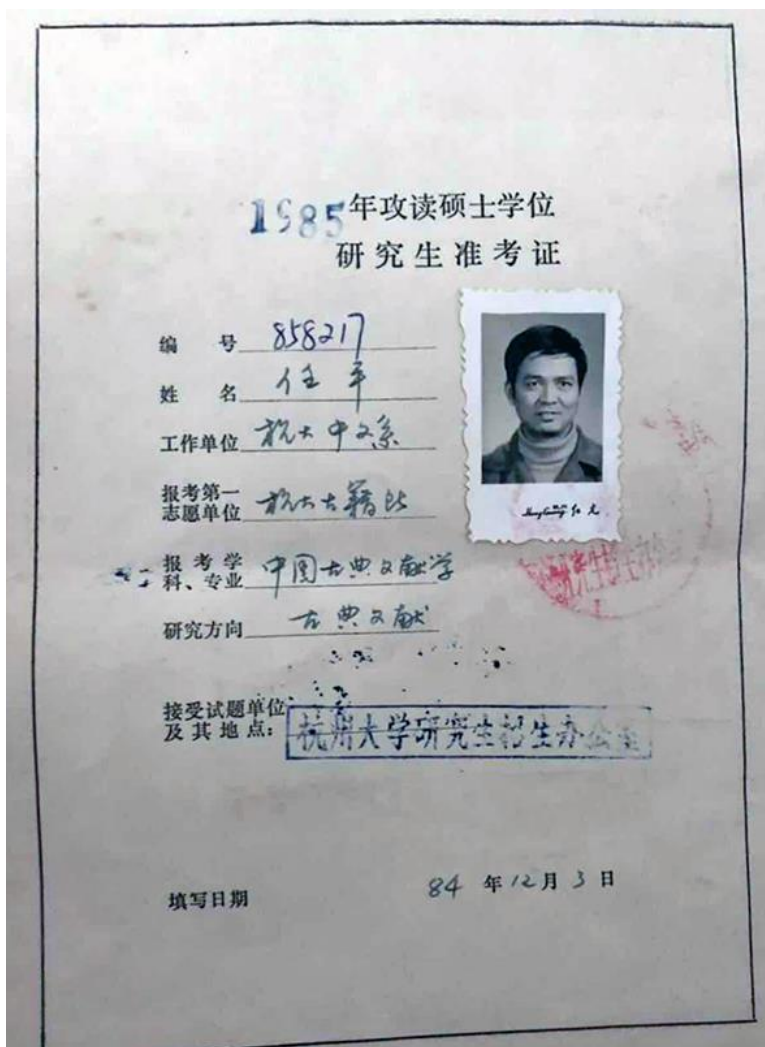 1985年攻读硕士学位
研究生准考证
编号 858217
姓名 任平
工作单位 杭大中文系
报考第一志愿单位 杭大古籍所
报考学科、专业 中国古典文献学
研究方向 古典文献
接受试题单位及其地点: 杭州大学研究生招生办公室
填写日期 84年12月3日